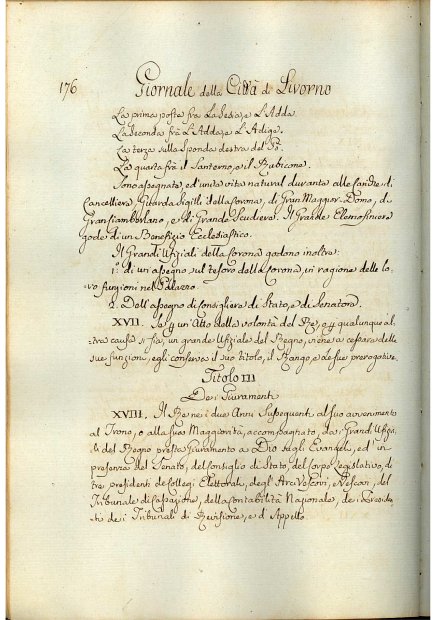 176 Giornale della Città di Livorno
La prima posta fra La Sesia, e L'Adda
La Seconda frà L'Adda, e L'Adige.
La terza sulla Sponda destra del Pò.
La quarta frà il Santerno, e il Rubicone.
Sono assegnate, ed unite vita natural durante alle Cariche di
Cancelliere Guarda Sigilli della Corona, di Gran Maggior-Domo, di
Gran Ciamberlano, e di Grande Scudiere. Il Grande Elemosiniere
gode di un Benefizio Ecclesiastico.
Il Grandi Ufiziali della Corona godono inoltre
1.º di un assegno sul tesoro della Corona in ragione delle lo-
ro funzioni nel Palazzo
2. Dell'assegno di Consigliere di Stato, e di Senatore.
XVII. Se p un'Atto della volontà del Re, o p qualunque al-
tra causa si sia, un grande Ufiziale del Regno, viene a cessare dalle
sue funzioni, egli conserva il suo titolo, il Rango, e le sue prerogative.
Titolo III
Dei Giuramenti
XVIII. Il Re nei due Anni Susseguenti al suo avvenimento
al Trono, o alla sua Maggiorità, accompagnato, da i Grandi Ufizia-
li del Regno presta Giuramento a Dio sugli Evangeli, ed in
presenza del Senato, del Consiglio di Stato, del Corpo Legislativo, di
tre presidenti de Collegi Elettorali, degl'Arcivescovi, e Vescovi, del
Tribunale di Cassazione, della Contabilità Nazionale, de i Preside-
nti de i Tribunali di Revisione, e d'Appello